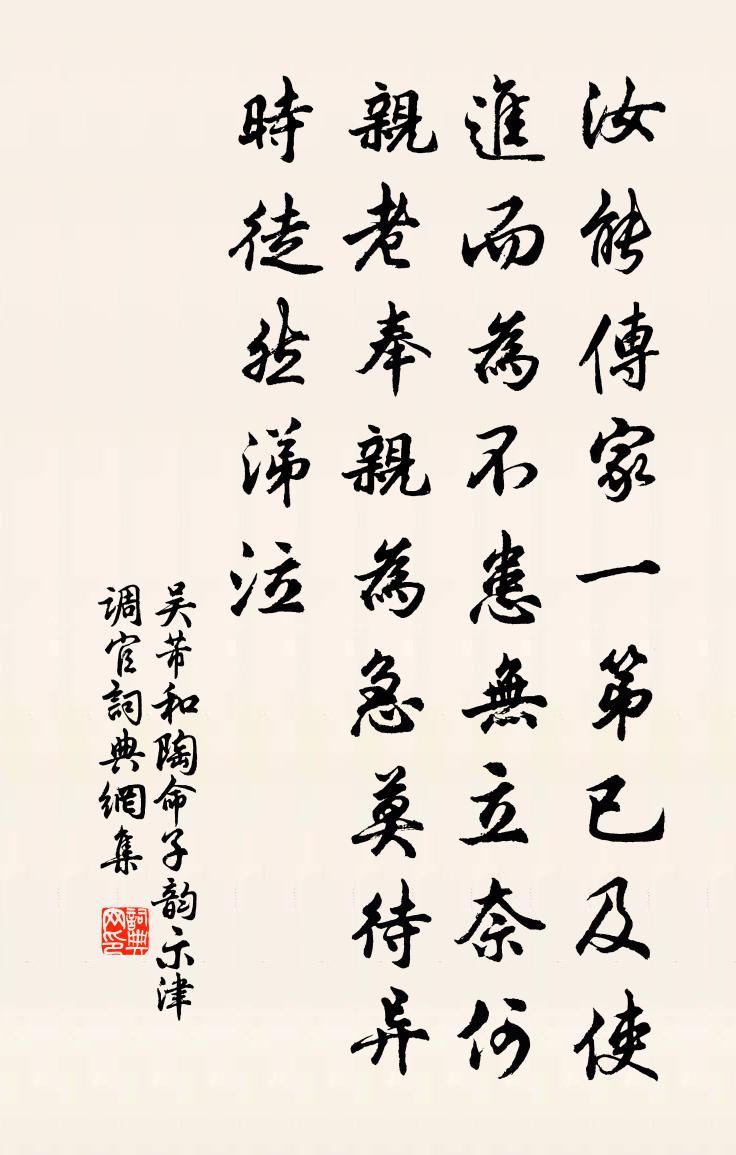 汝能傳家一第已及使
進而為不患無立奈何
親老奉親為急莫待异
時徒然涕泣
吴芾和陶命子韵示津
调官詞典網集
詞典网印